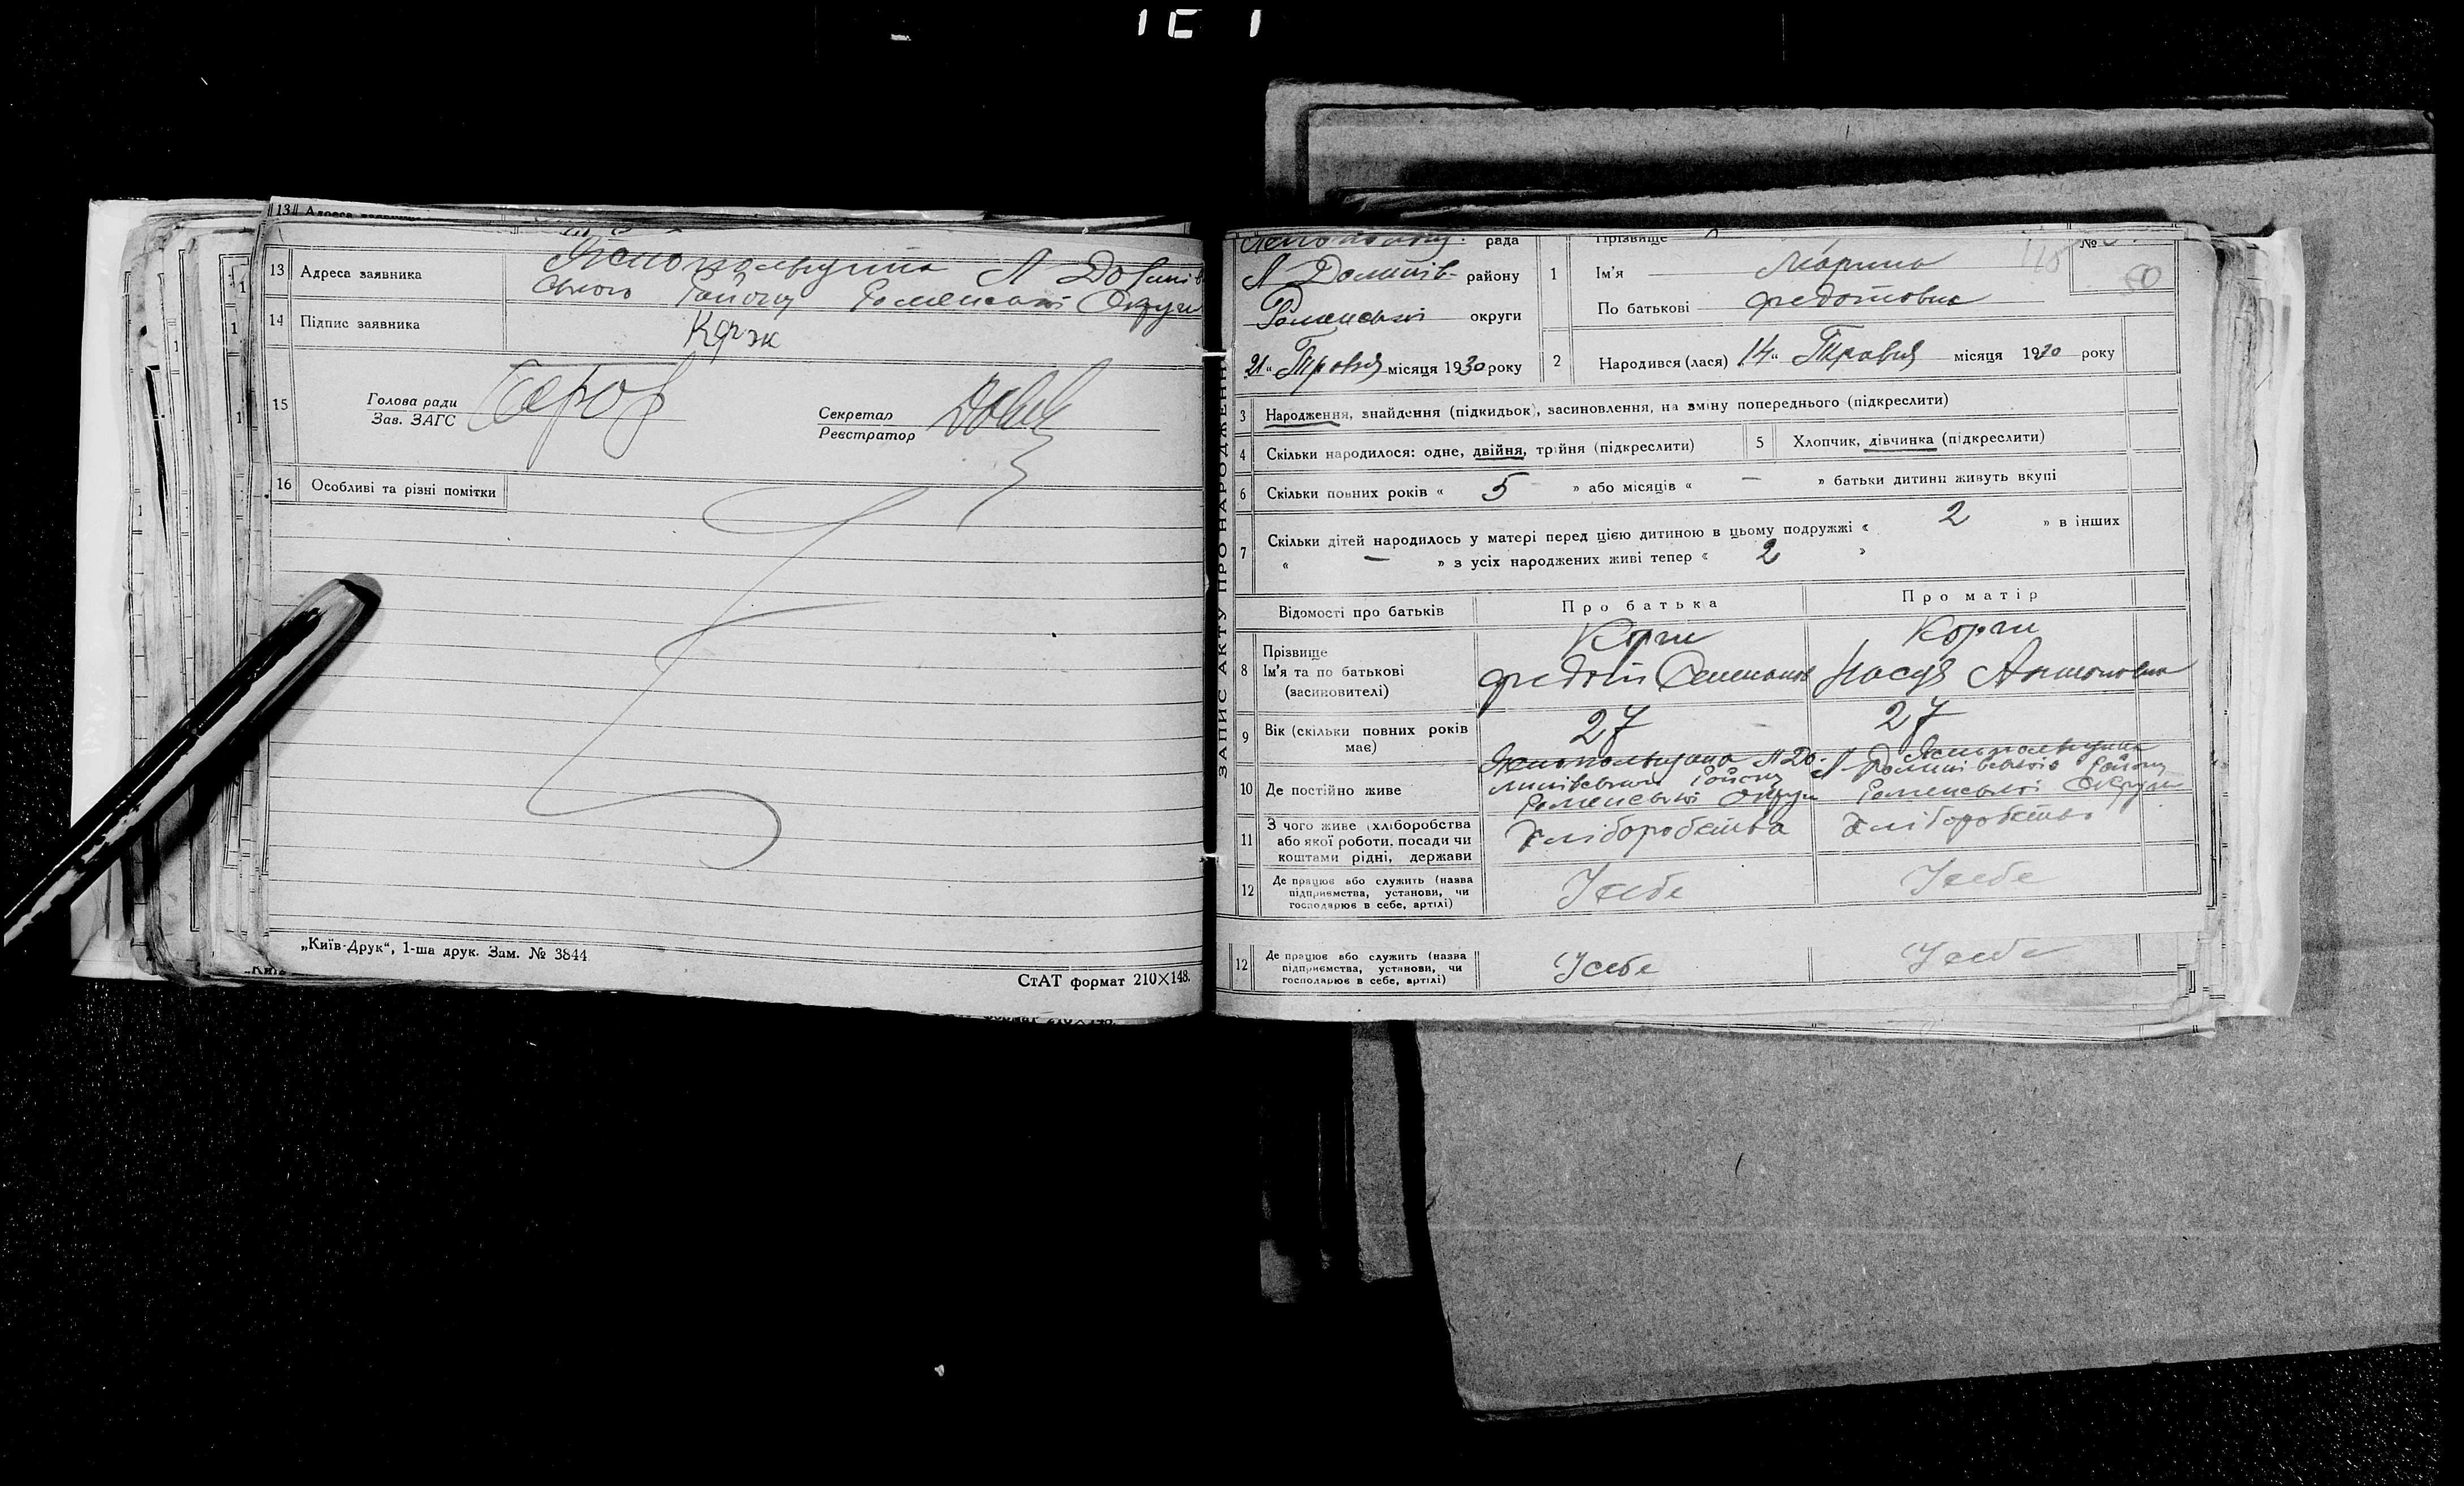 13 Адреса заявника Яснопольщина Л Долинів
ського Району Роменської Округи
14 Підпис заявника Корж
15 Голова ради
Зав. ЗАГС
Секретар
Реєстратор
16 Особливі та різні помітки
„Київ-Друк“, 1-ша друк. Зам. № 3844
СтАТ формат 210×148.
ЗАПИС АКТУ ПРО НАРОДЖЕННЯ
рада
Л Долинів- району
Роменської округи
21 „ Травня місяця 1930 року
Прізвище
№
50
1 Ім'я Марина
По батькові Федотовна
2 Народився (лася) 14 „ Травня місяця 1930 року
3 Народження, знайдення (підкидьок), засиновлення, на зміну попереднього (підкреслити)
4 Скільки народилося: одне, двійня, трійня (підкреслити) 5 Хлопчик, дівчинка (підкреслити)
6 Скільки повних років « 5 » або місяців « — » батьки дитини живуть вкупі
7 Скільки дітей народилось у матері перед цією дитиною в цьому подружжі « 2 » в інших
« — » з усіх народжених живі тепер « 2 »
Відомості про батьків Про батька Про матір
8 Прізвище Корж Корж
Ім'я та по батькові Федот Семенов Настя Антоновна
(засиновителі)
9 Вік (скільки повних років має) 27 27
10 Де постійно живе
Роменської Округи Роменської Округи
11 З чого живе (хліборобства
або якої роботи, посади чи
коштами рідні, держави Хліборобства Хліборобства
12 Де працює або служить (назва
підприємства, установи, чи
господарює в себе, артілі) У себе У себе
12 Де працює або служить (назва
підприємства, установи, чи
господарює в себе, артілі) У себе У себе